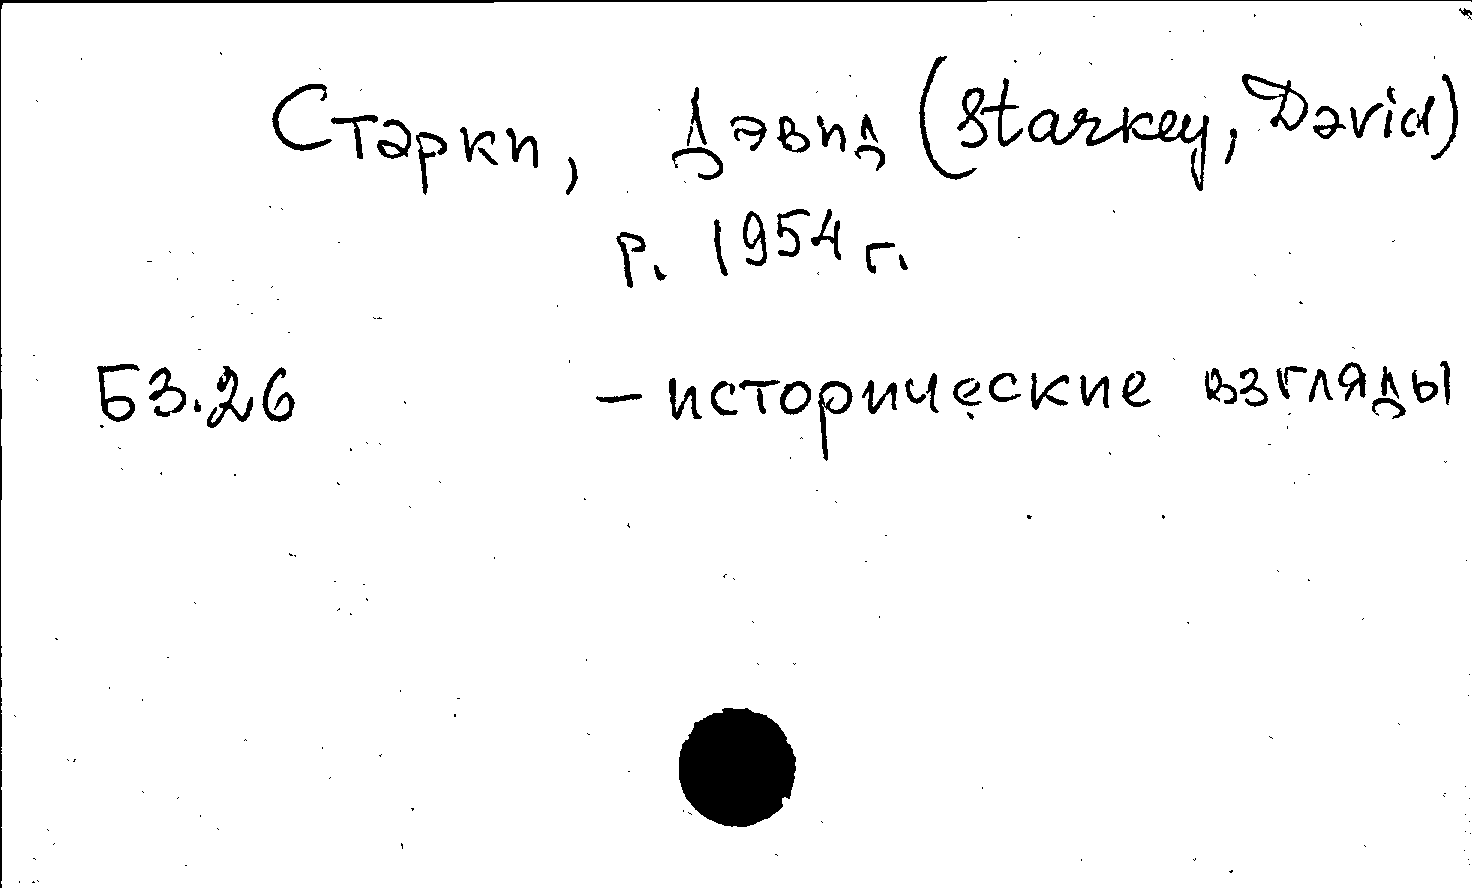 Старки, Дэвид (Starkey, David)
р. 1954 г.
Б3.26 - исторические взгляды